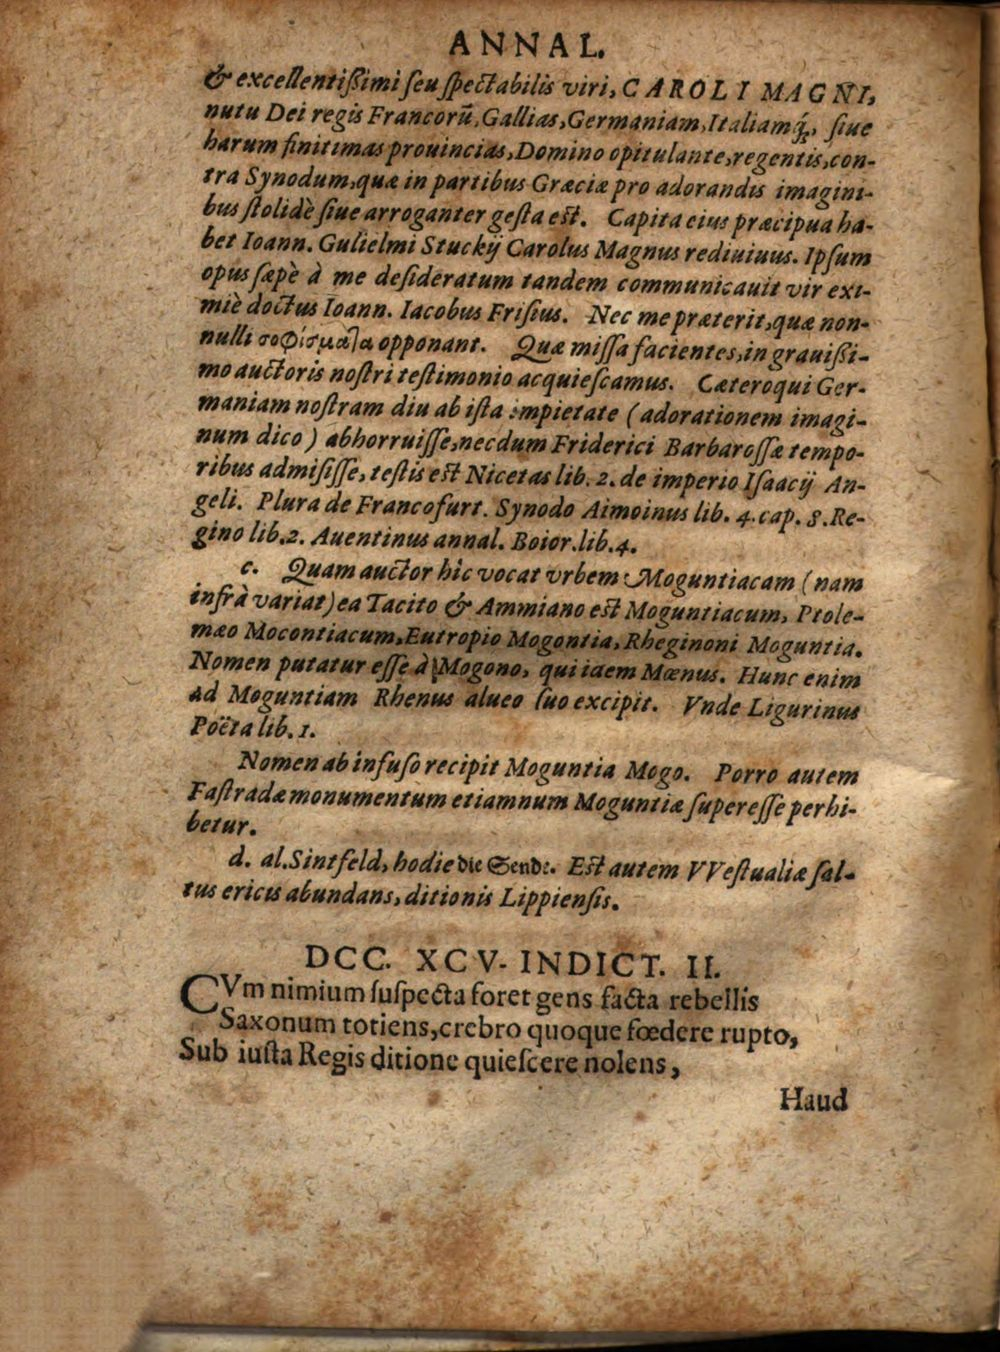 ANNAL.
& excellentißimi ſeu ſpectabilis viri, CAROLI MAGNI,
nutu Dei regis Francorū, Gallias, Germaniam, Italiamq́, ſiue
harum finitimas prouincias, Domino opitulante, regentis, con-
tra Synodum, quæ in partibus Græciæ pro adorandis imagini-
bus ſtolidè ſiue arroganter geſta eſt. Capita eius præcipua ha-
bet Ioann. Gulielmi Stuckij Carolus Magnus rediuiuus. Ipſum
opus ſæpè à me deſideratum tandem communicauit vir exi-
miè doctus Ioann. Iacobus Friſius. Nec me præterit, quæ non-
nulli σοφίσμαα opponant. Quæ miſſa facientes, in grauißi-
mo auctoris noſtri teſtimonio acquieſcamus. Cæteroqui Ger-
maniam noſtram diu ab iſta impietate (adorationem imagi-
num dico) abhorruiſſe, necdum Friderici Barbaroſſæ tempo-
ribus admiſiſſe, teſtis eſt Nicetas lib. 2. de imperio Iſaacij An-
geli. Plura de Francofurt. Synodo Aimoinus lib. 4. cap. 8. Re-
gino lib. 2. Auentinus annal. Boior. lib. 4.
c. Quam auctor hîc vocat vrbem Moguntiacam (nam
infrà variat) ea Tacito & Ammiano eſt Moguntiacum, Ptole-
mæo Mocontiacum, Eutropio Mogontia, Rheginoni Moguntia.
Nomen putatur eſſe à Mogono, qui idem Mœnus. Hunc enim
ad Moguntiam Rhenus alueo ſuo excipit. Vnde Ligurinus
Poëta lib. 1.
Nomen ab infuſo recipit Moguntia Mogo. Porro autem
Faſtradæ monumentum etiamnum Moguntiæ ſupereſſe perhi-
betur.
d. al. Sintfeld, hodie die Sende. Eſt autem VVeſtualiæ ſal-
tus ericis abundans, ditionis Lippienſis.
DCC. XCV. INDICT. II.
CVm nimium ſuſpecta foret gens facta rebellis
Saxonum totiens, crebro quoque fœdere rupto,
Sub iuſta Regis ditione quieſcere nolens,
Haud